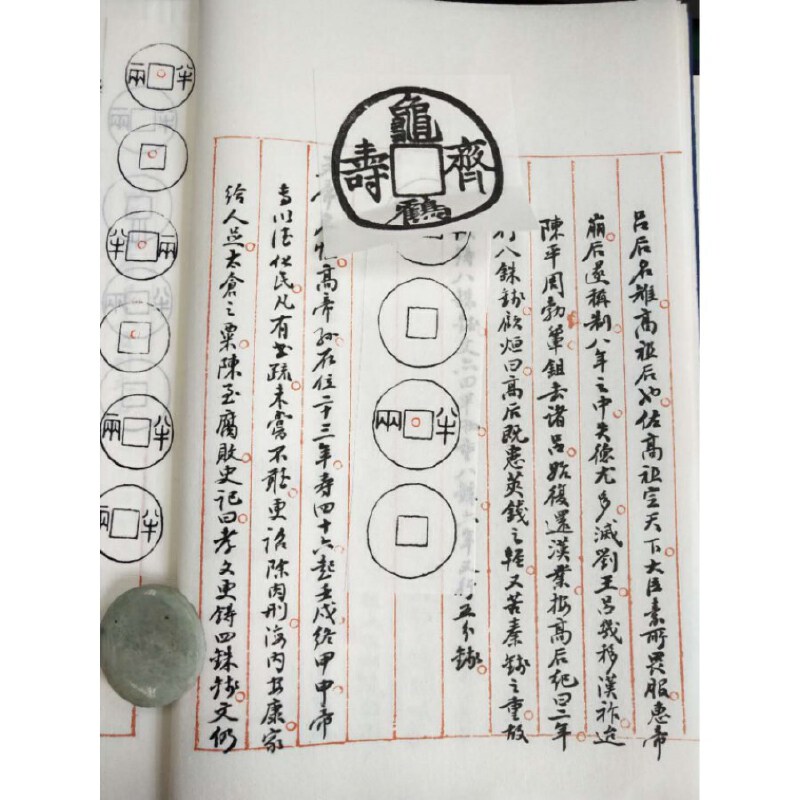 龜鶴齊壽
呂后名雉高祖后也佐高祖定天下大臣素所畏服惠帝
崩后遂稱制八年之中失德尤多滅劉王呂幾移漢祚迨
陳平周勃輩鉏去諸呂始復還漢業按高后紀曰二年
行八銖錢顧烜曰高后既患莢錢之輕又苦秦錢之重故
五分錢
半兩
高帝孫在位二十三年壽四十六起壬戌終甲申帝
專以德化民凡有書疏未嘗不聽更詔除肉刑海內安康家
給人足太倉之粟陳至腐敗史記曰孝文更鑄四銖錢文仍
半兩
兩半
半兩
半兩